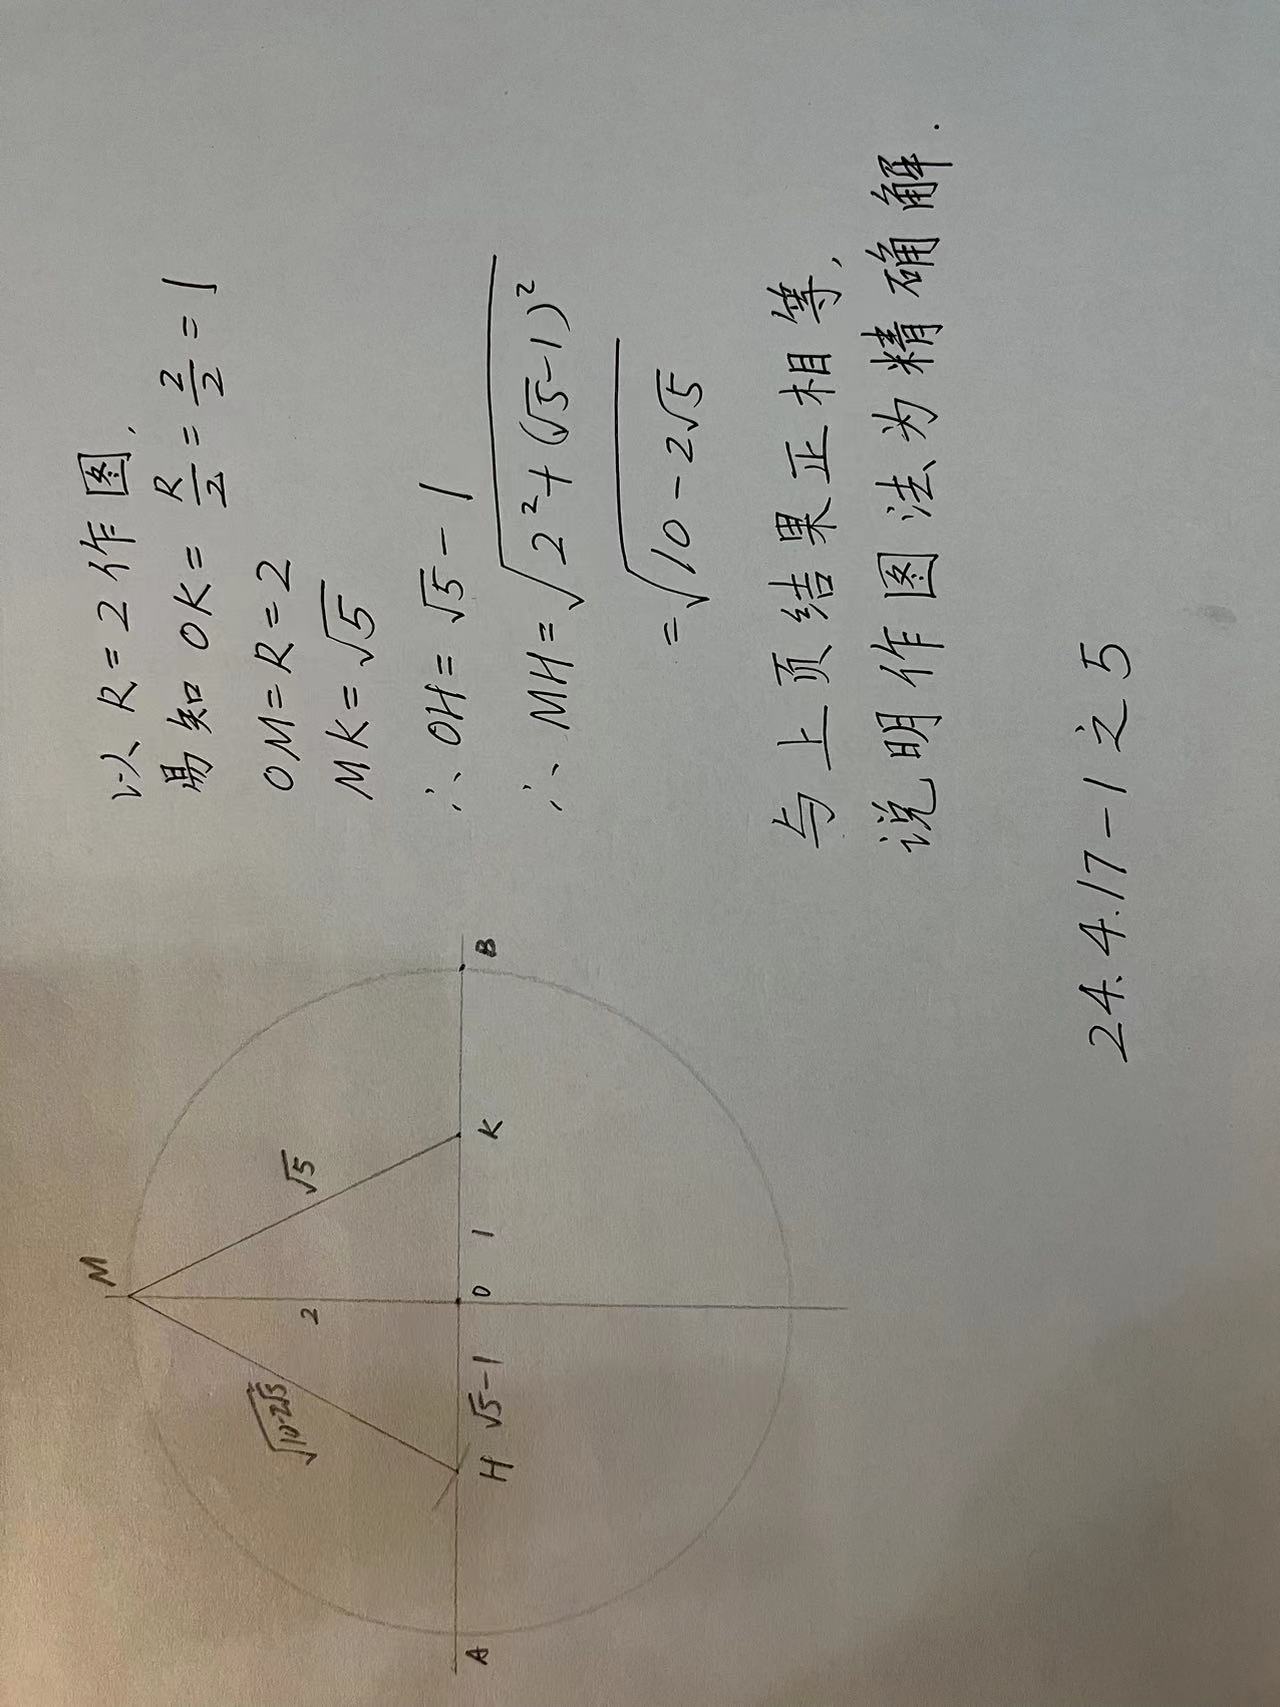 以 R = 2 作图,
易知 OK = R/2 = 2/2 = 1
OM = R = 2
MK = √5
∴ OH = √5 - 1
∴ MH = √(2² + (√5-1)²)
= √(10 - 2√5)
与上页结果正相等,
说明作图法为精确解.
24.4.17-1之5
M
√(10-2√5)
2
√5
A
H
√5-1
O
1
K
B